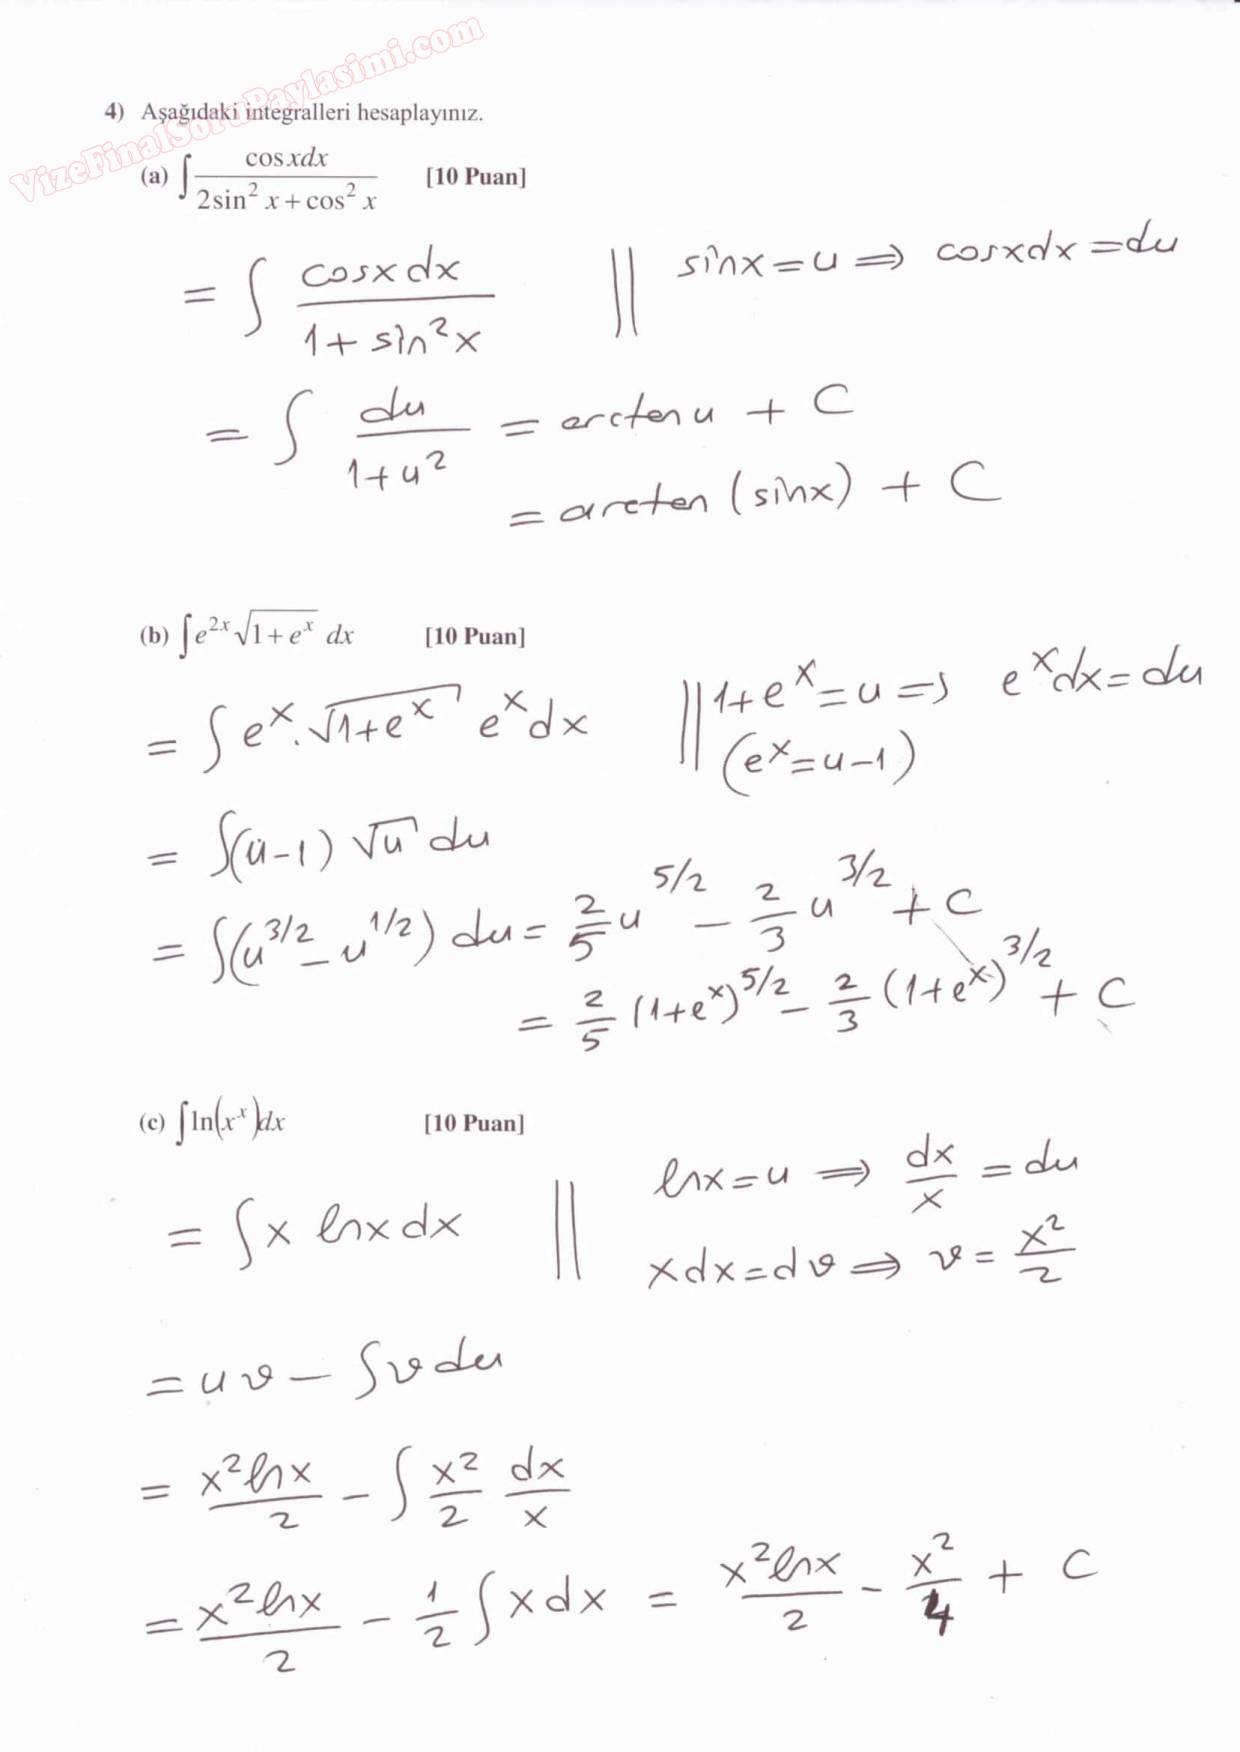 VizeFinalSoruPaylasimi.com
4) Aşağıdaki integralleri hesaplayınız.
(a) ∫ cosxdx / (2sin² x + cos² x) [10 Puan]
= ∫ cosx dx / (1 + sin²x) || sinx = u ⇒ cosxdx = du
= ∫ du / (1+u²) = arctan u + C
= arctan (sinx) + C
(b) ∫e²ˣ√(1+eˣ) dx [10 Puan]
= ∫ eˣ.√(1+eˣ) eˣdx || 1+eˣ = u ⇒ eˣdx = du
(eˣ = u-1)
= ∫(u-1) √u du
= ∫(u^3/2 - u^1/2) du = 2/5 u^5/2 - 2/3 u^3/2 + C
= 2/5 (1+eˣ)^5/2 - 2/3 (1+eˣ)^3/2 + C
(c) ∫ln(xˣ)dx [10 Puan]
lnx = u ⇒ dx/x = du
= ∫x lnx dx ||
xdx = dv ⇒ v = x²/2
= uv - ∫v du
= x²lnx/2 - ∫ x²/2 dx/x
= x²lnx/2 - 1/2 ∫x dx = x²lnx/2 - x²/4 + C